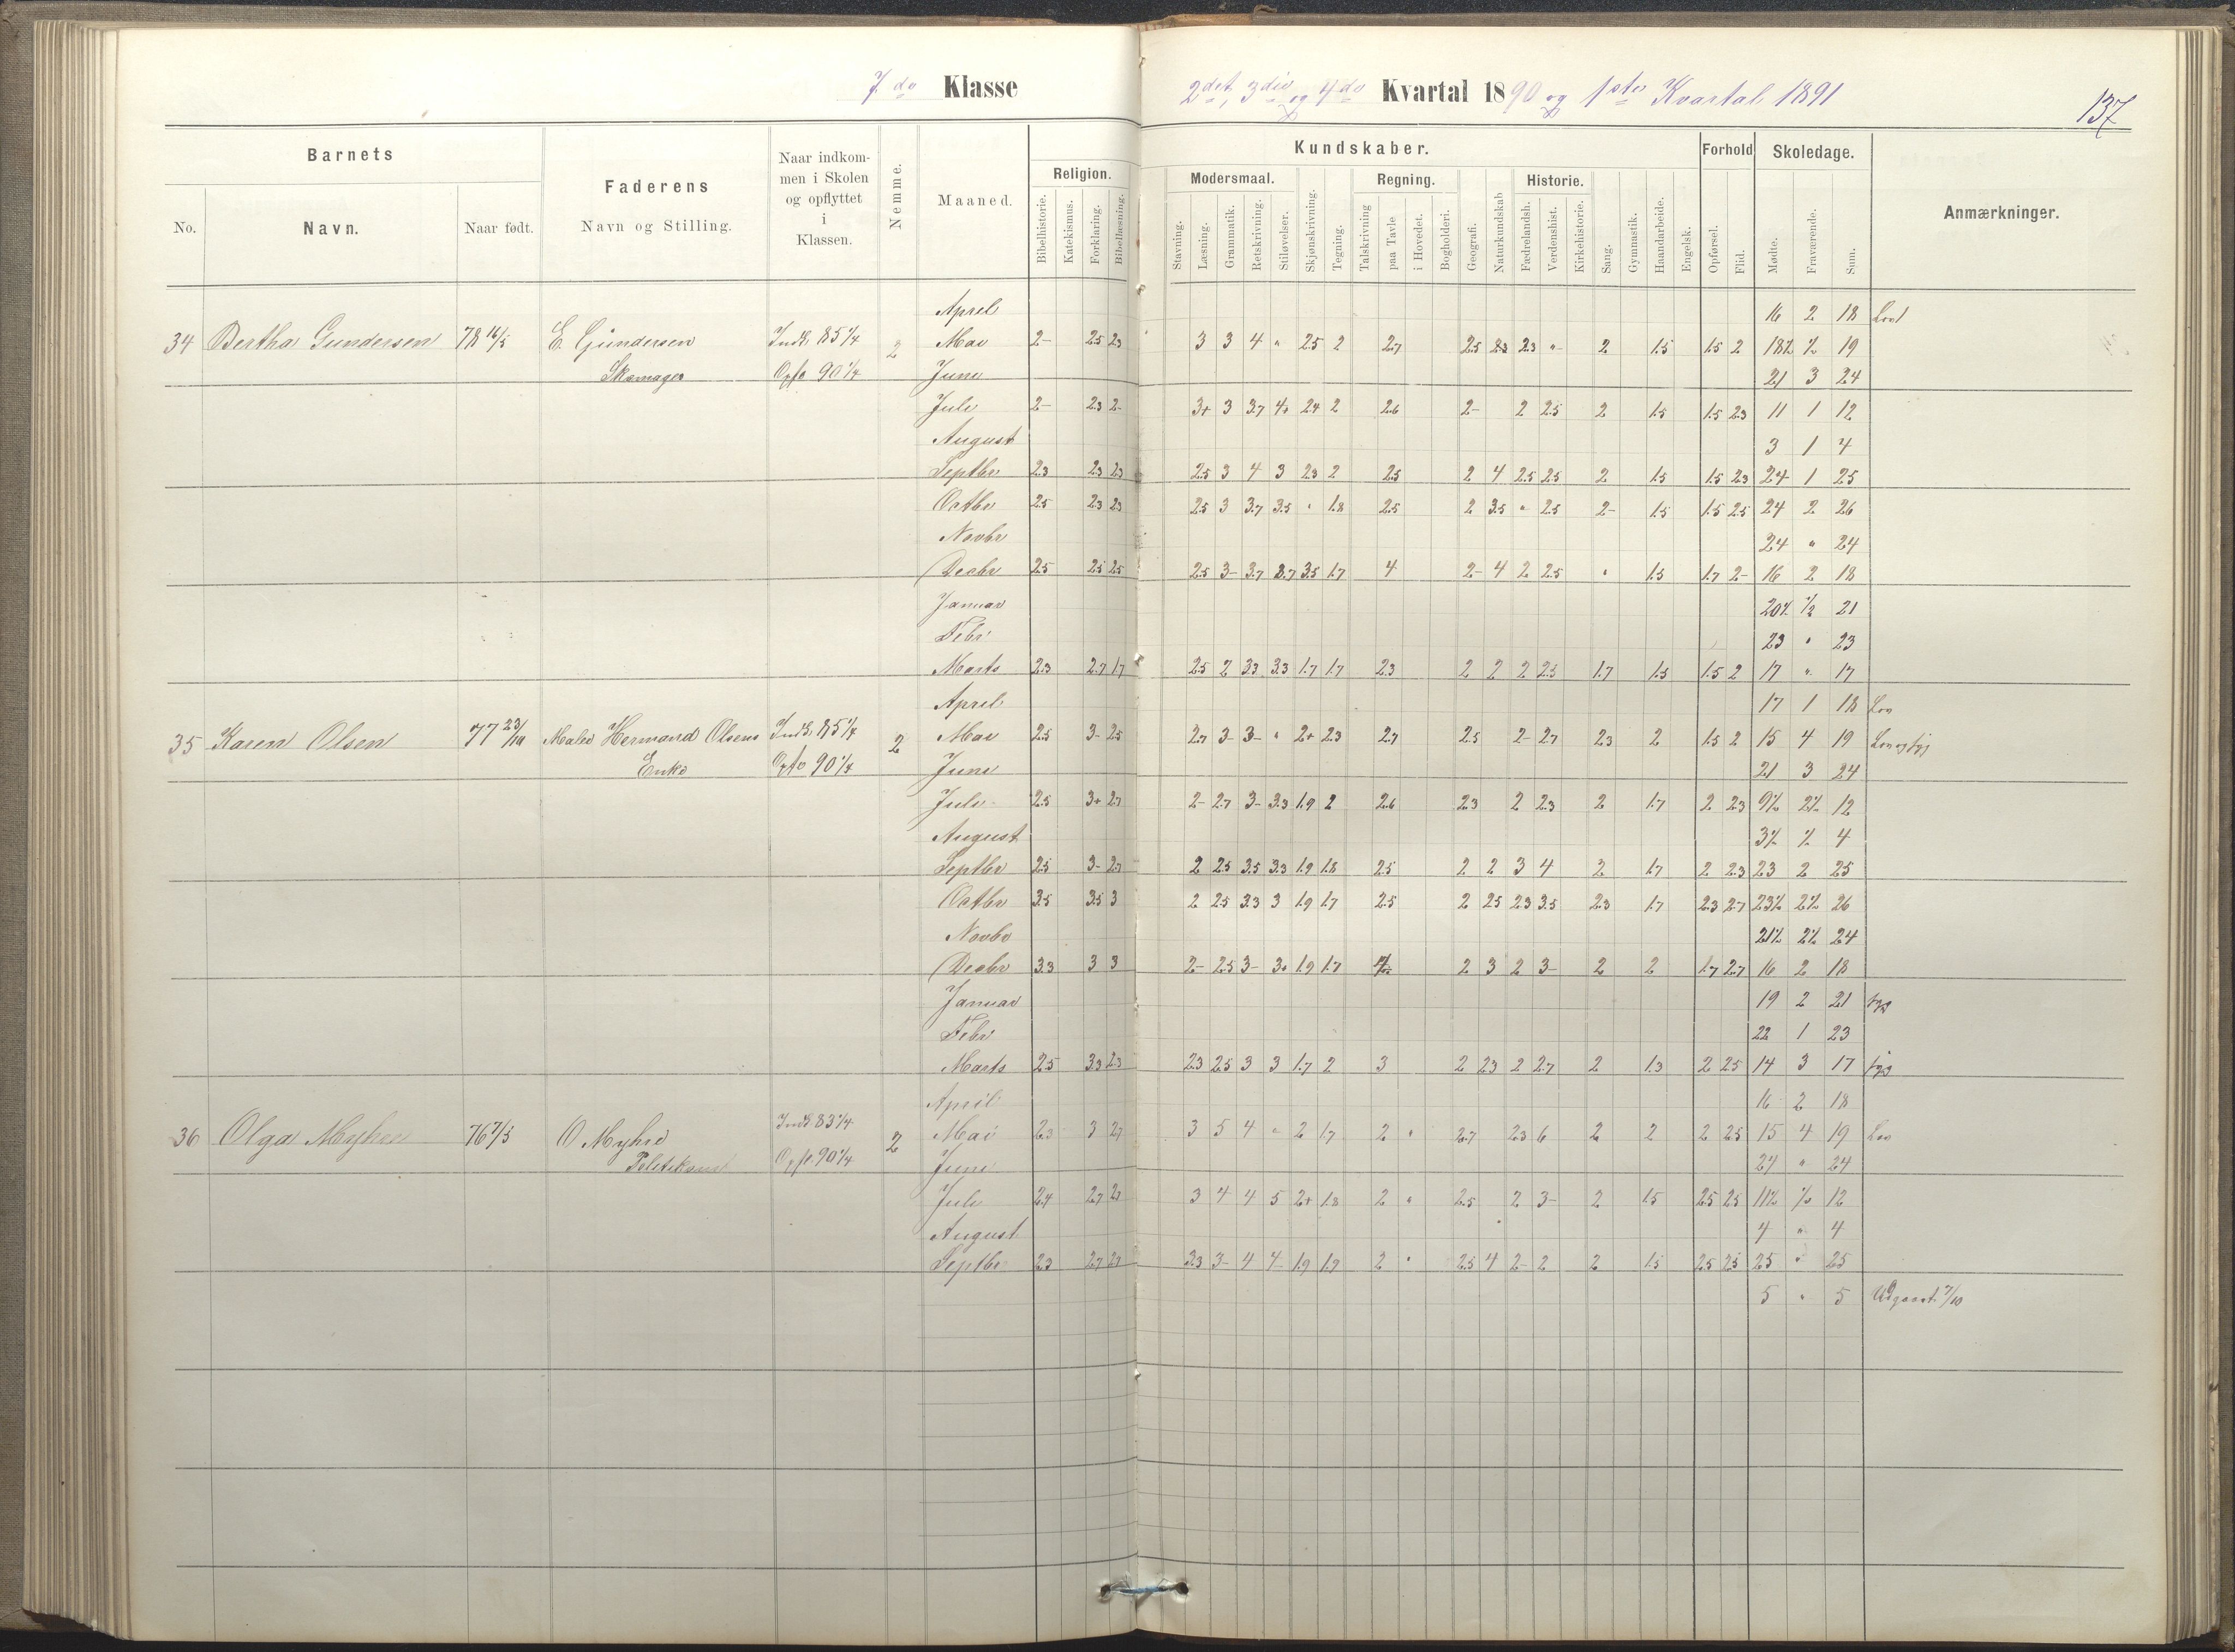 7de Klasse 2det, 3die og 4de Kvartal 1890 og 1ste Kvartal 1891
137
Barnets
Faderens
Naar indkommen i Skolen og opflyttet i Klassen.
Nemme.
Maaned.
Religion.
Kundskaber.
Forhold
Skoledage.
Anmærkninger.
Modersmaal.
Regning.
Historie.
No.
Navn.
Naar født.
Navn og Stilling.
Bibelhistorie. Katekismus. Forklaring. Bibellæsning.
Stavning. Læsning. Grammatik. Retskrivning. Stiløvelser. Skjønskrivning. Tegning. Talskrivning paa Tavle i Hovedet. Bogholderi. Geografi. Naturkundskab Fædrelandsh. Verdenshist. Kirkehistorie. Sang. Gymnastik. Haandarbeide. Engelsk. Opførsel. Flid. Møtte. Fraværende. Sum.
April 16 2 18 Lov
34 Bertha Gundersen 78 16/5 E. Gundersen Indk. 85 1/4 2 Mai 2- 2.5 2.3 3 3 4 " 2.5 2 2.7 2.5 2.3 2.3 " 2 1.5 1.5 2 18½ ½ 19
Skomager Opfl 90 1/4 Juni 21 3 24
Juli 2- 2.3 2- 3+ 3 3.7 4+ 2.4 2 2.6 2- 2 2.5 2 1.5 1.5 2.3 11 1 12
August 3 1 4
Septbr 2.3 2.3 2.3 2.5 3 4 3 2.3 2 2.5 2 4 2.5 2.5 2 1.5 1.5 2.3 24 1 25
Octbr 2.5 2.3 2.3 2.5 3 3.7 3.5 " 1.8 2.5 2 3.5 " 2.5 2- 1.5 1.5 2.5 24 2 26
Novbr 24 " 24
Decbr 2.5 2.5 2.5 2.5 3- 3.7 3.7 3.5 1.7 4 2- 4 2 2.5 " 1.5 1.7 2- 16 2 18
Januar 20½ ½ 21
Febr 23 " 23
Marts 2.3 2.7 1.7 2.5 2 3.3 3.3 1.7 1.7 2.3 2 2 2 2.3 1.7 1.5 1.5 2 17 " 17
April 17 1 18 Lov
35 Karen Olsen 77 23/10 Maler Hermand Olsens Indk. 85 1/4 2 Mai 2.5 3- 2.5 2.7 3- 3- " 2+ 2.3 2.7 2.5 2- 2.7 2.3 2 1.5 2 15 4 19 Lov og syg
Enke Opfl 90 1/4 Juni 21 3 24
Juli 2.5 3+ 2.7 2- 2.7 3- 3.3 1.9 2 2.6 2.3 2 2.3 2 1.7 2 2.3 9½ 2½ 12
August 3½ ½ 4
Septbr 2.5 3- 2.7 2 2.5 3.5 3.3 1.9 1.8 2.5 2 2 3 4 2 1.7 2 2.3 23 2 25
Octbr 3.5 3.5 3 2 2.5 3.3 3 1.9 1.7 2.5 2 2.5 2.3 3.5 2.3 1.7 2.3 2.7 23½ 2½ 26
Novbr 21½ 2½ 24
Decbr 3.3 3 3 2- 2.5 3- 3+ 1.9 1.7 2 3 2 3- 2 2 1.7 2.7 16 2 18
Januar 19 2 21 syg
Febr 22 1 23
Marts 2.5 3.3 2.3 2.3 2.5 3 3 1.7 2 3 2 2.3 2 2.7 2 1.3 2 2.5 14 3 17 syg
April 16 2 18
36 Olga Myhre 76 7/5 O Myhre Indk 83 1/4 2 Mai 2.3 3 2.7 3 5 4 " 2 1.7 2 " 2.7 2.3 6 2 2 2 2.5 15 4 19 Lov
Politikonst Opfl. 90 1/4 Juni 24 " 24
Juli 2.4 2.7 2.7 3 4 4 5 2+ 1.8 2 " 2.5 2 3- 2 1.5 2.5 2.5 11½ ½ 12
August 4 " 4
Septbr 2.3 2.7 2.7 3.3 3- 4 4- 1.9 1.7 2 " 2.5 4 2- 2 2 1.5 2.5 2.5 25 " 25
5 " 5 Udgaaet 7/10